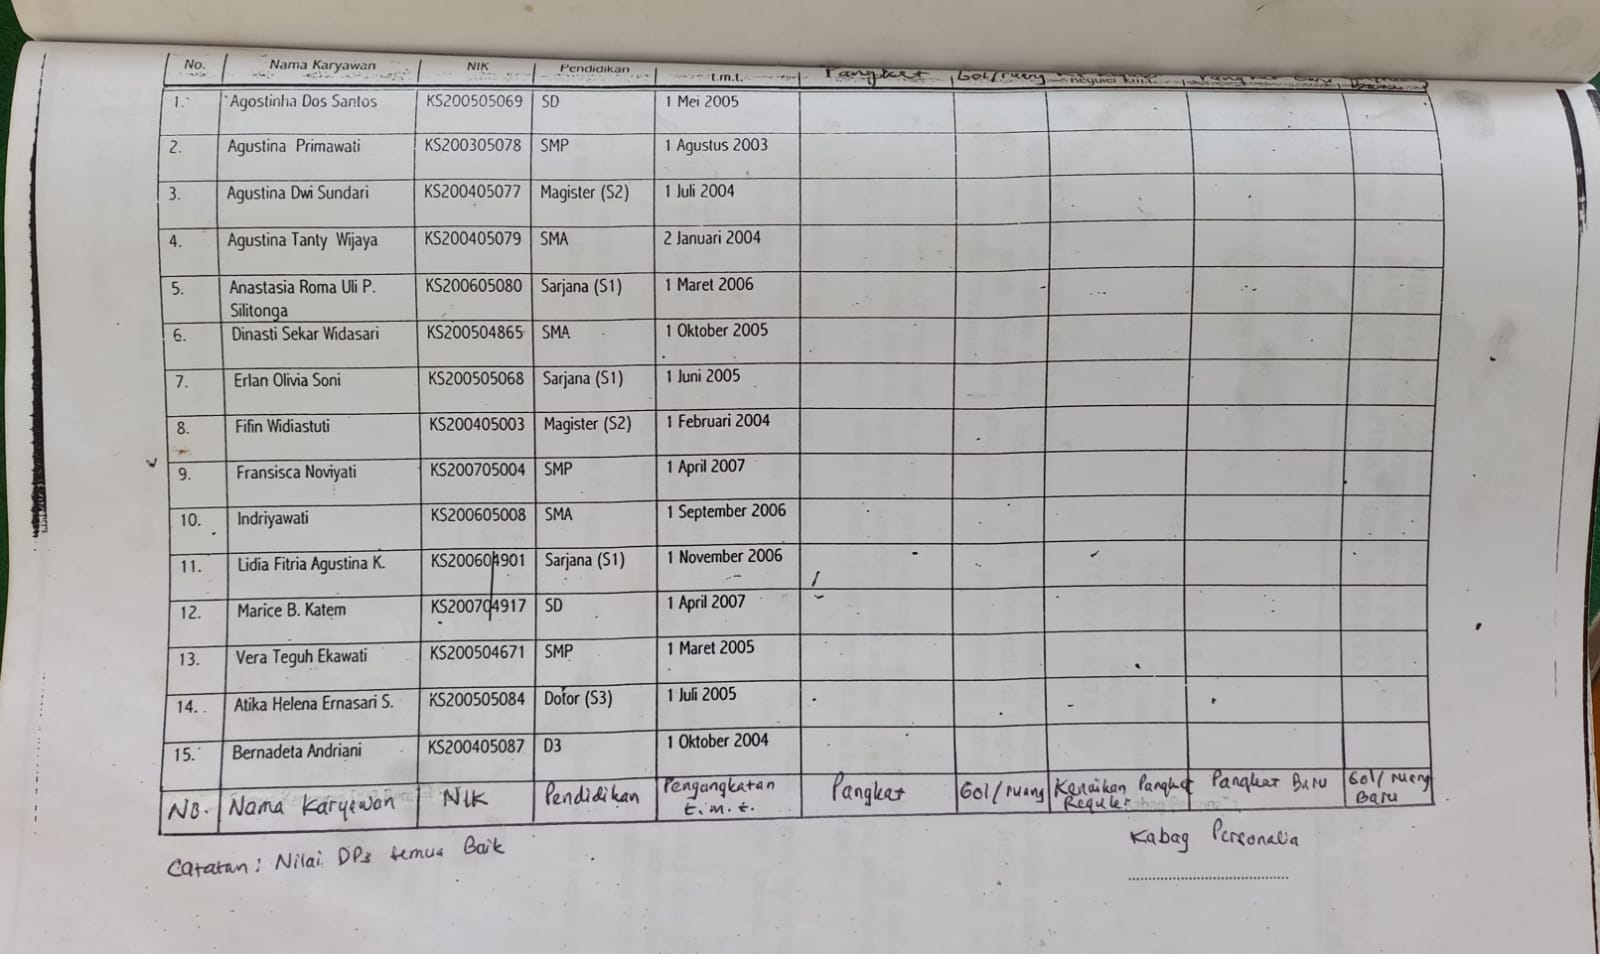 No. Nama Karyawan NIK Pendidikan t.m.t. Pangkat Gol/ruang
1. Agostinha Dos Santos KS200505069 SD 1 Mei 2005
2. Agustina Primawati KS200305078 SMP 1 Agustus 2003
3. Agustina Dwi Sundari KS200405077 Magister (S2) 1 Juli 2004
4. Agustina Tanty Wijaya KS200405079 SMA 2 Januari 2004
5. Anastasia Roma Uli P. KS200605080 Sarjana (S1) 1 Maret 2006
Silitonga
6. Dinasti Sekar Widasari KS200504865 SMA 1 Oktober 2005
7. Erlan Olivia Soni KS200505068 Sarjana (S1) 1 Juni 2005
8. Fifin Widiastuti KS200405003 Magister (S2) 1 Februari 2004
9. Fransisca Noviyati KS200705004 SMP 1 April 2007
10. Indriyawati KS200605008 SMA 1 September 2006
11. Lidia Fitria Agustina K. KS200604901 Sarjana (S1) 1 November 2006
12. Marice B. Katem KS200704917 SD 1 April 2007
13. Vera Teguh Ekawati KS200504671 SMP 1 Maret 2005
14. Atika Helena Ernasari S. KS200505084 Dofor (S3) 1 Juli 2005
15. Bernadeta Andriani KS200405087 D3 1 Oktober 2004
No. Nama Karyawan NIK Pendidikan Pengangkatan Pangkat Gol/ruang Kenaikan Pangkat Pangkat Baru Gol/ruang
t.m.t. Reguler Baru
Catatan: Nilai DP3 semua Baik
Kabag Personalia